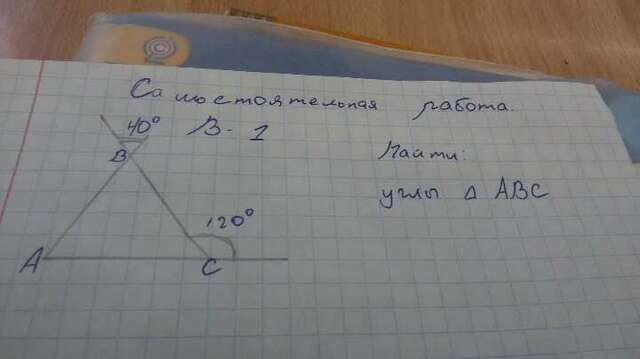 Самостоятельная работа.
40° В-1
B
Найти:
углы Δ ABC
120°
A
C